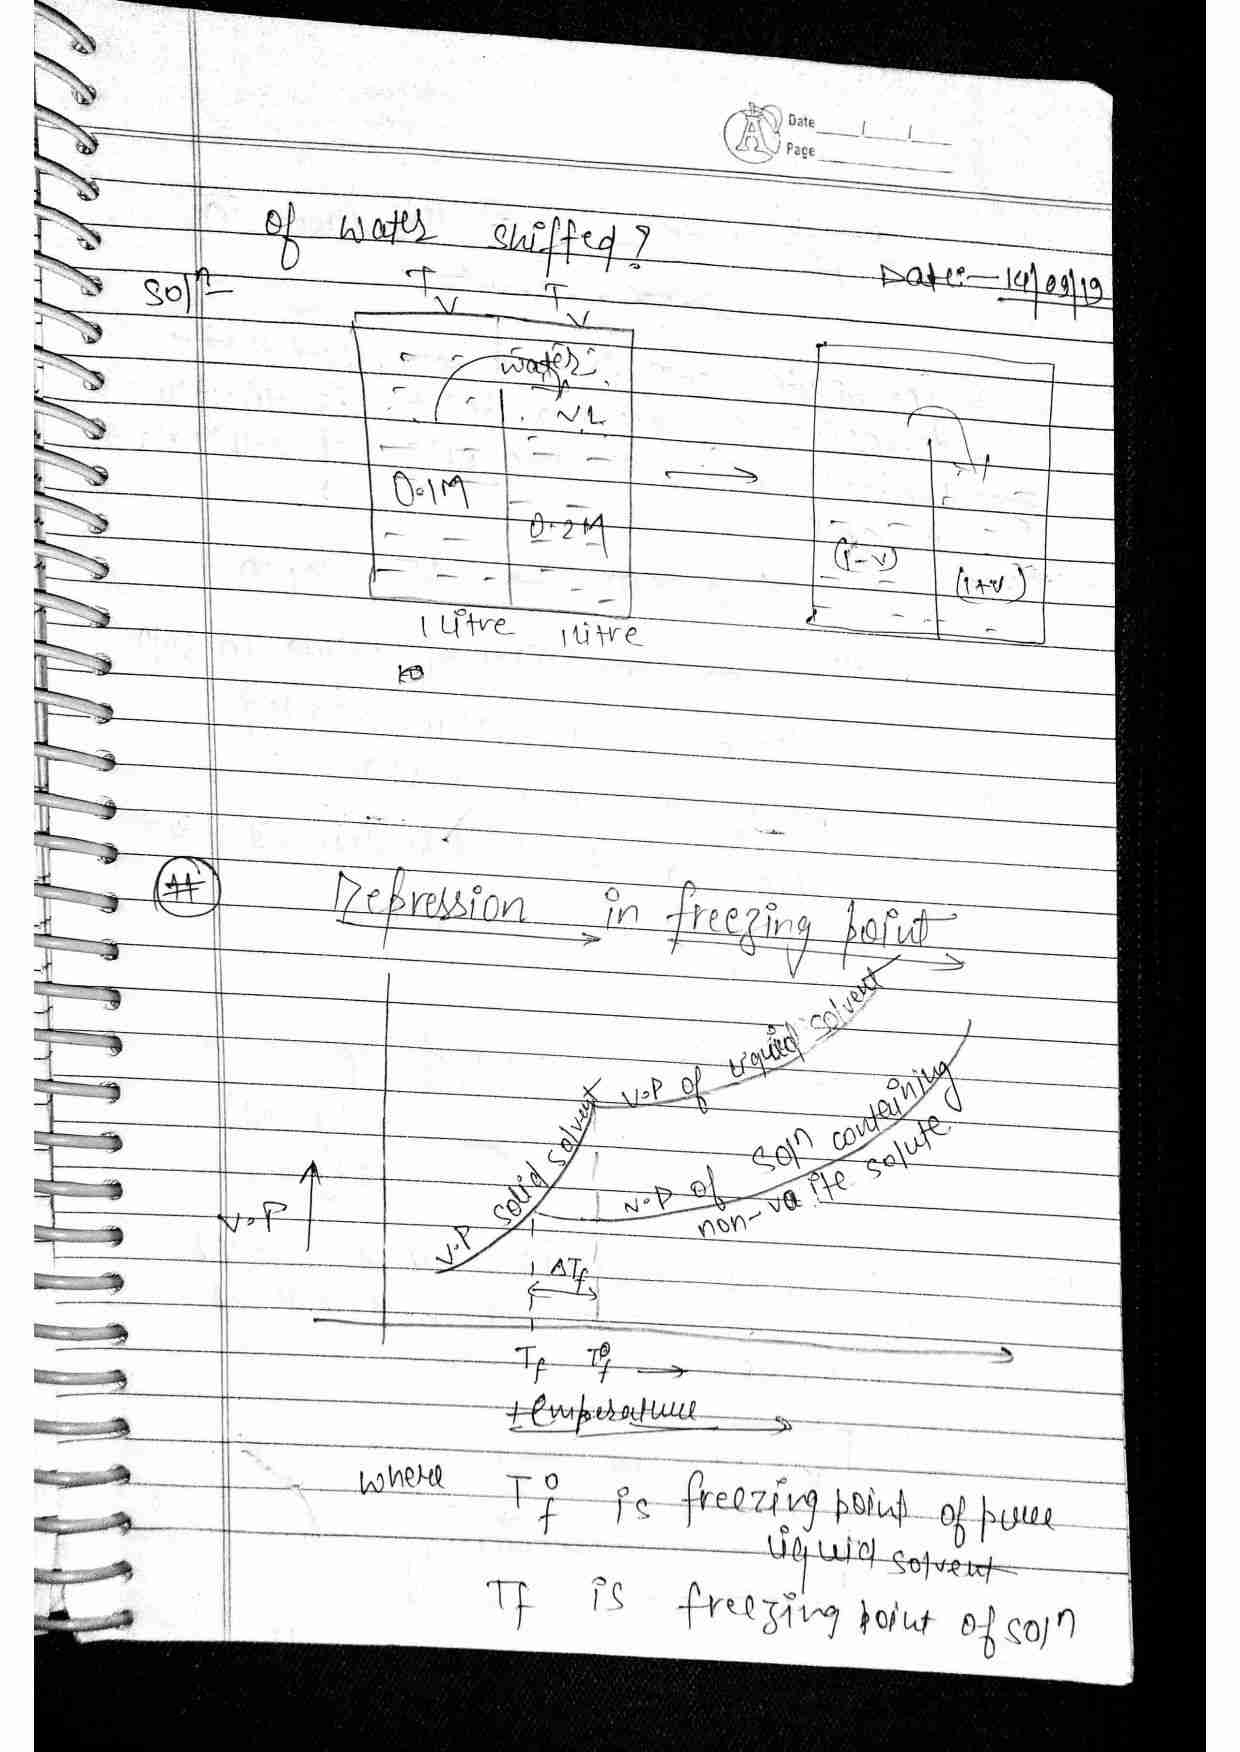 Date
Page
of water shiffed?
Date:- 14/09/19
Solⁿ-
T T
V V
water
V L
0.1M
0.2M
(1-v)
(1+v)
1 Litre 1 litre
#
Depression in freezing point
V.P of liquid solvent
V.P solid solvent
V.P of solⁿ containing
non-va ite solute
V.P
ΔTf
Tf T°f
temperature
where T°f is freezing point of pure
liquid solvent
Tf is freezing point of solⁿ